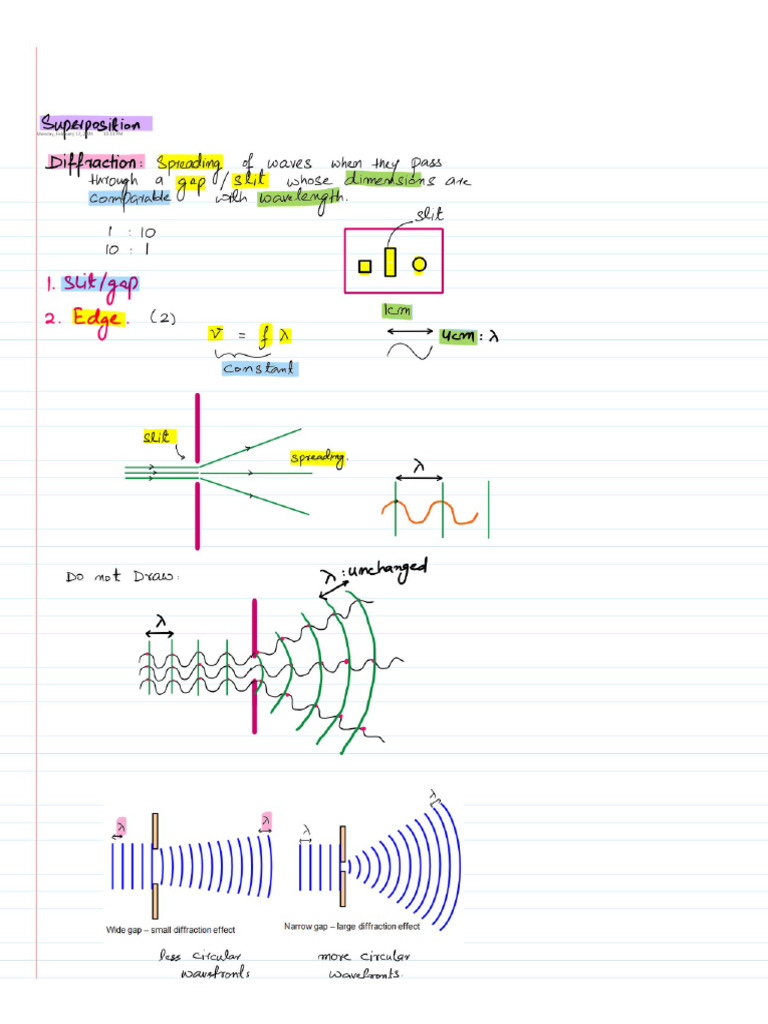 Superposition
Monday, February 12,
Diffraction: Spreading of waves when they pass
through a gap / slit whose dimensions are
comparable with wavelength.
slit
1 : 10
10 : 1
1. Slit/gap
2. Edge. (2)
1cm
v = f λ
4cm : λ
constant
slit
spreading.
λ
Do not Draw:
λ : unchanged
λ
λ
λ
λ
λ
Wide gap – small diffraction effect
Narrow gap – large diffraction effect
less circular
wavefronts
more circular
wavefronts.